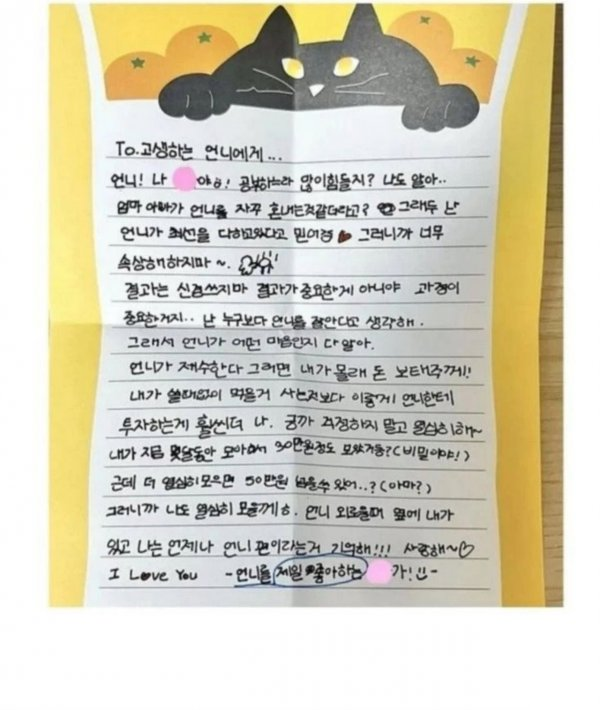 To. 고생하는 언니에게...
언니! 나 야ㅎ! 공부하느라 많이힘들지? 나도 알아..
엄마 아빠가 언니를 자꾸 혼내는것같더라고? 그래두 난
언니가 최선을 다하고있다고 믿어경 그러니까 너무
속상해하지마~.
결과는 신경쓰지마 결과가 중요한게 아니야 과정이
중요한거지.. 난 누구보다 언니를 잘안다고 생각해.
그래서 언니가 어떤 마음인지 다 알아.
언니가 재수한다 그러면 내가 몰래 돈 보태주께!
내가 쓸때없이 먹을거 사는것보다 이렇게! 언니한테
투자하는게 훨씬더 나. 긍까 걱정하지 말고 열심히해~
내가 지금 몇달동안 모아놔서 30만원정도 모았거등?(비밀이야!)
근데 더 열심히모으면 50만원 넘을수 있어..?(아마?)
그러니까 나도 열심히 모을께ㅎ. 언니 외로울때 옆에 내가
있고 나는 언제나 언니 편이라는거 기억해!!! 사랑해~♡
I Love You -언니를 제일 좋아하는 가!!-